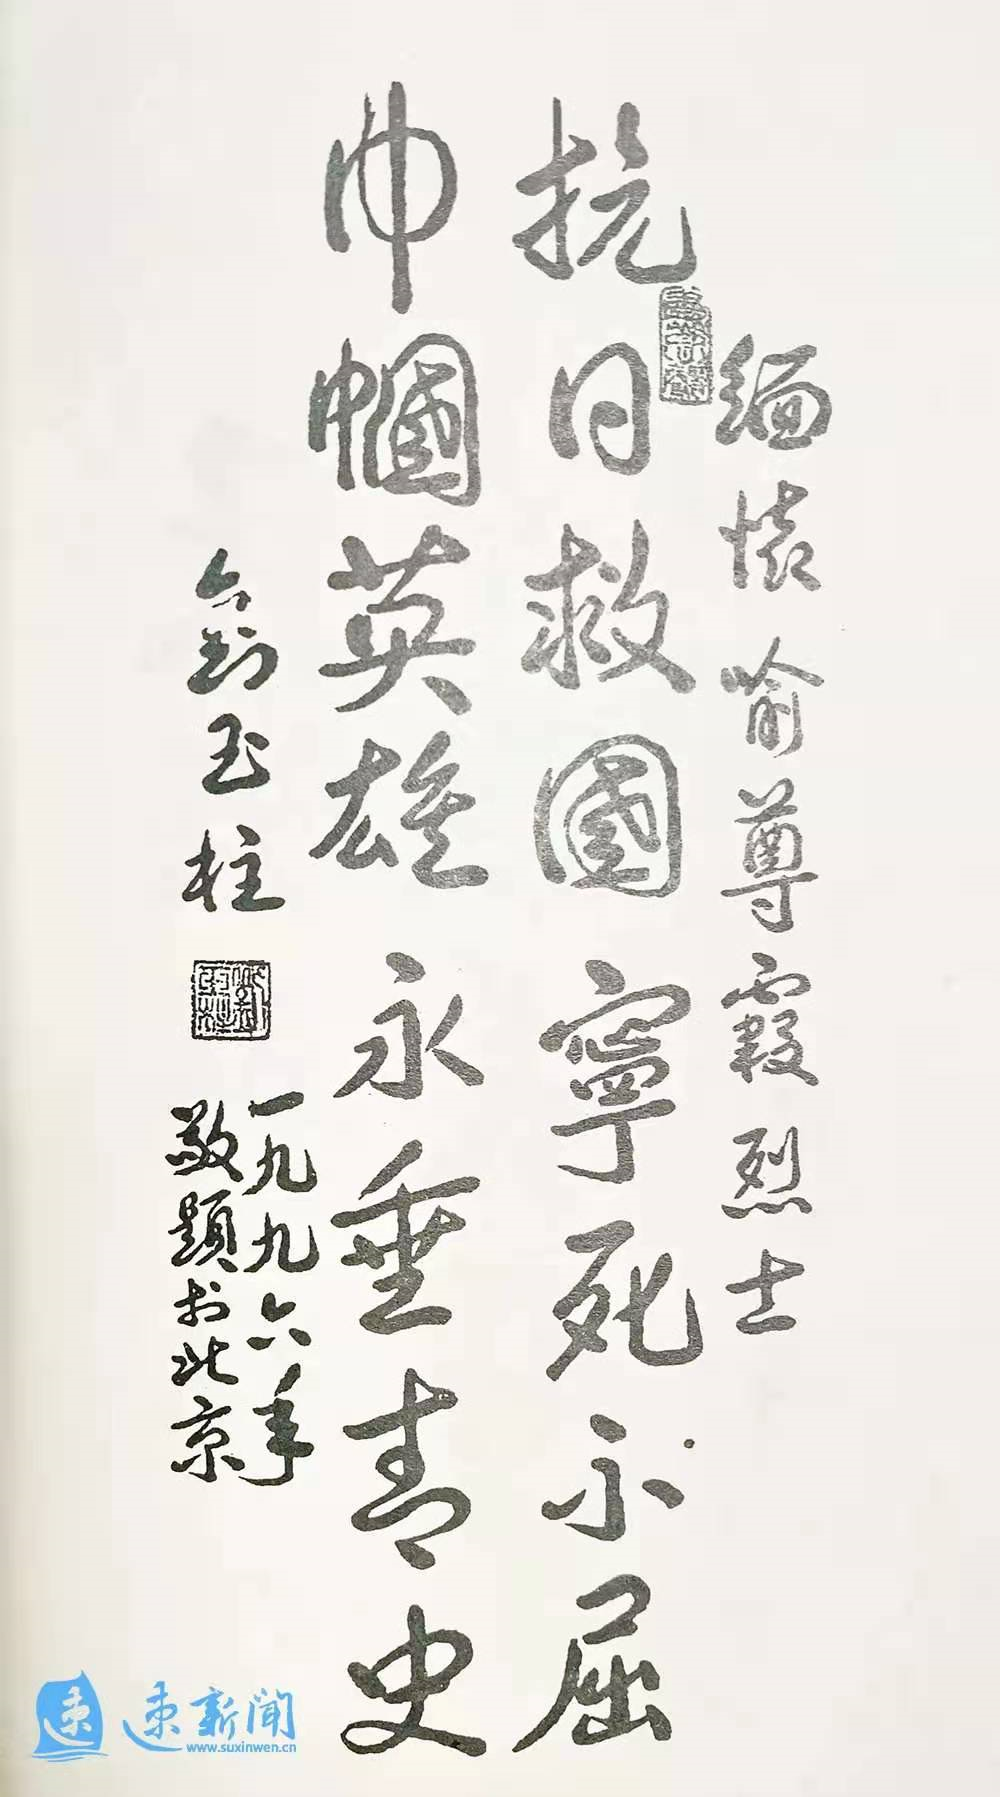 缅怀喻尊霞烈士
抗日救國寧死不屈
巾帼英雄永垂青史
刘玉柱
一九九六年
敬题於北京
速新闻
www.suxinwen.cn